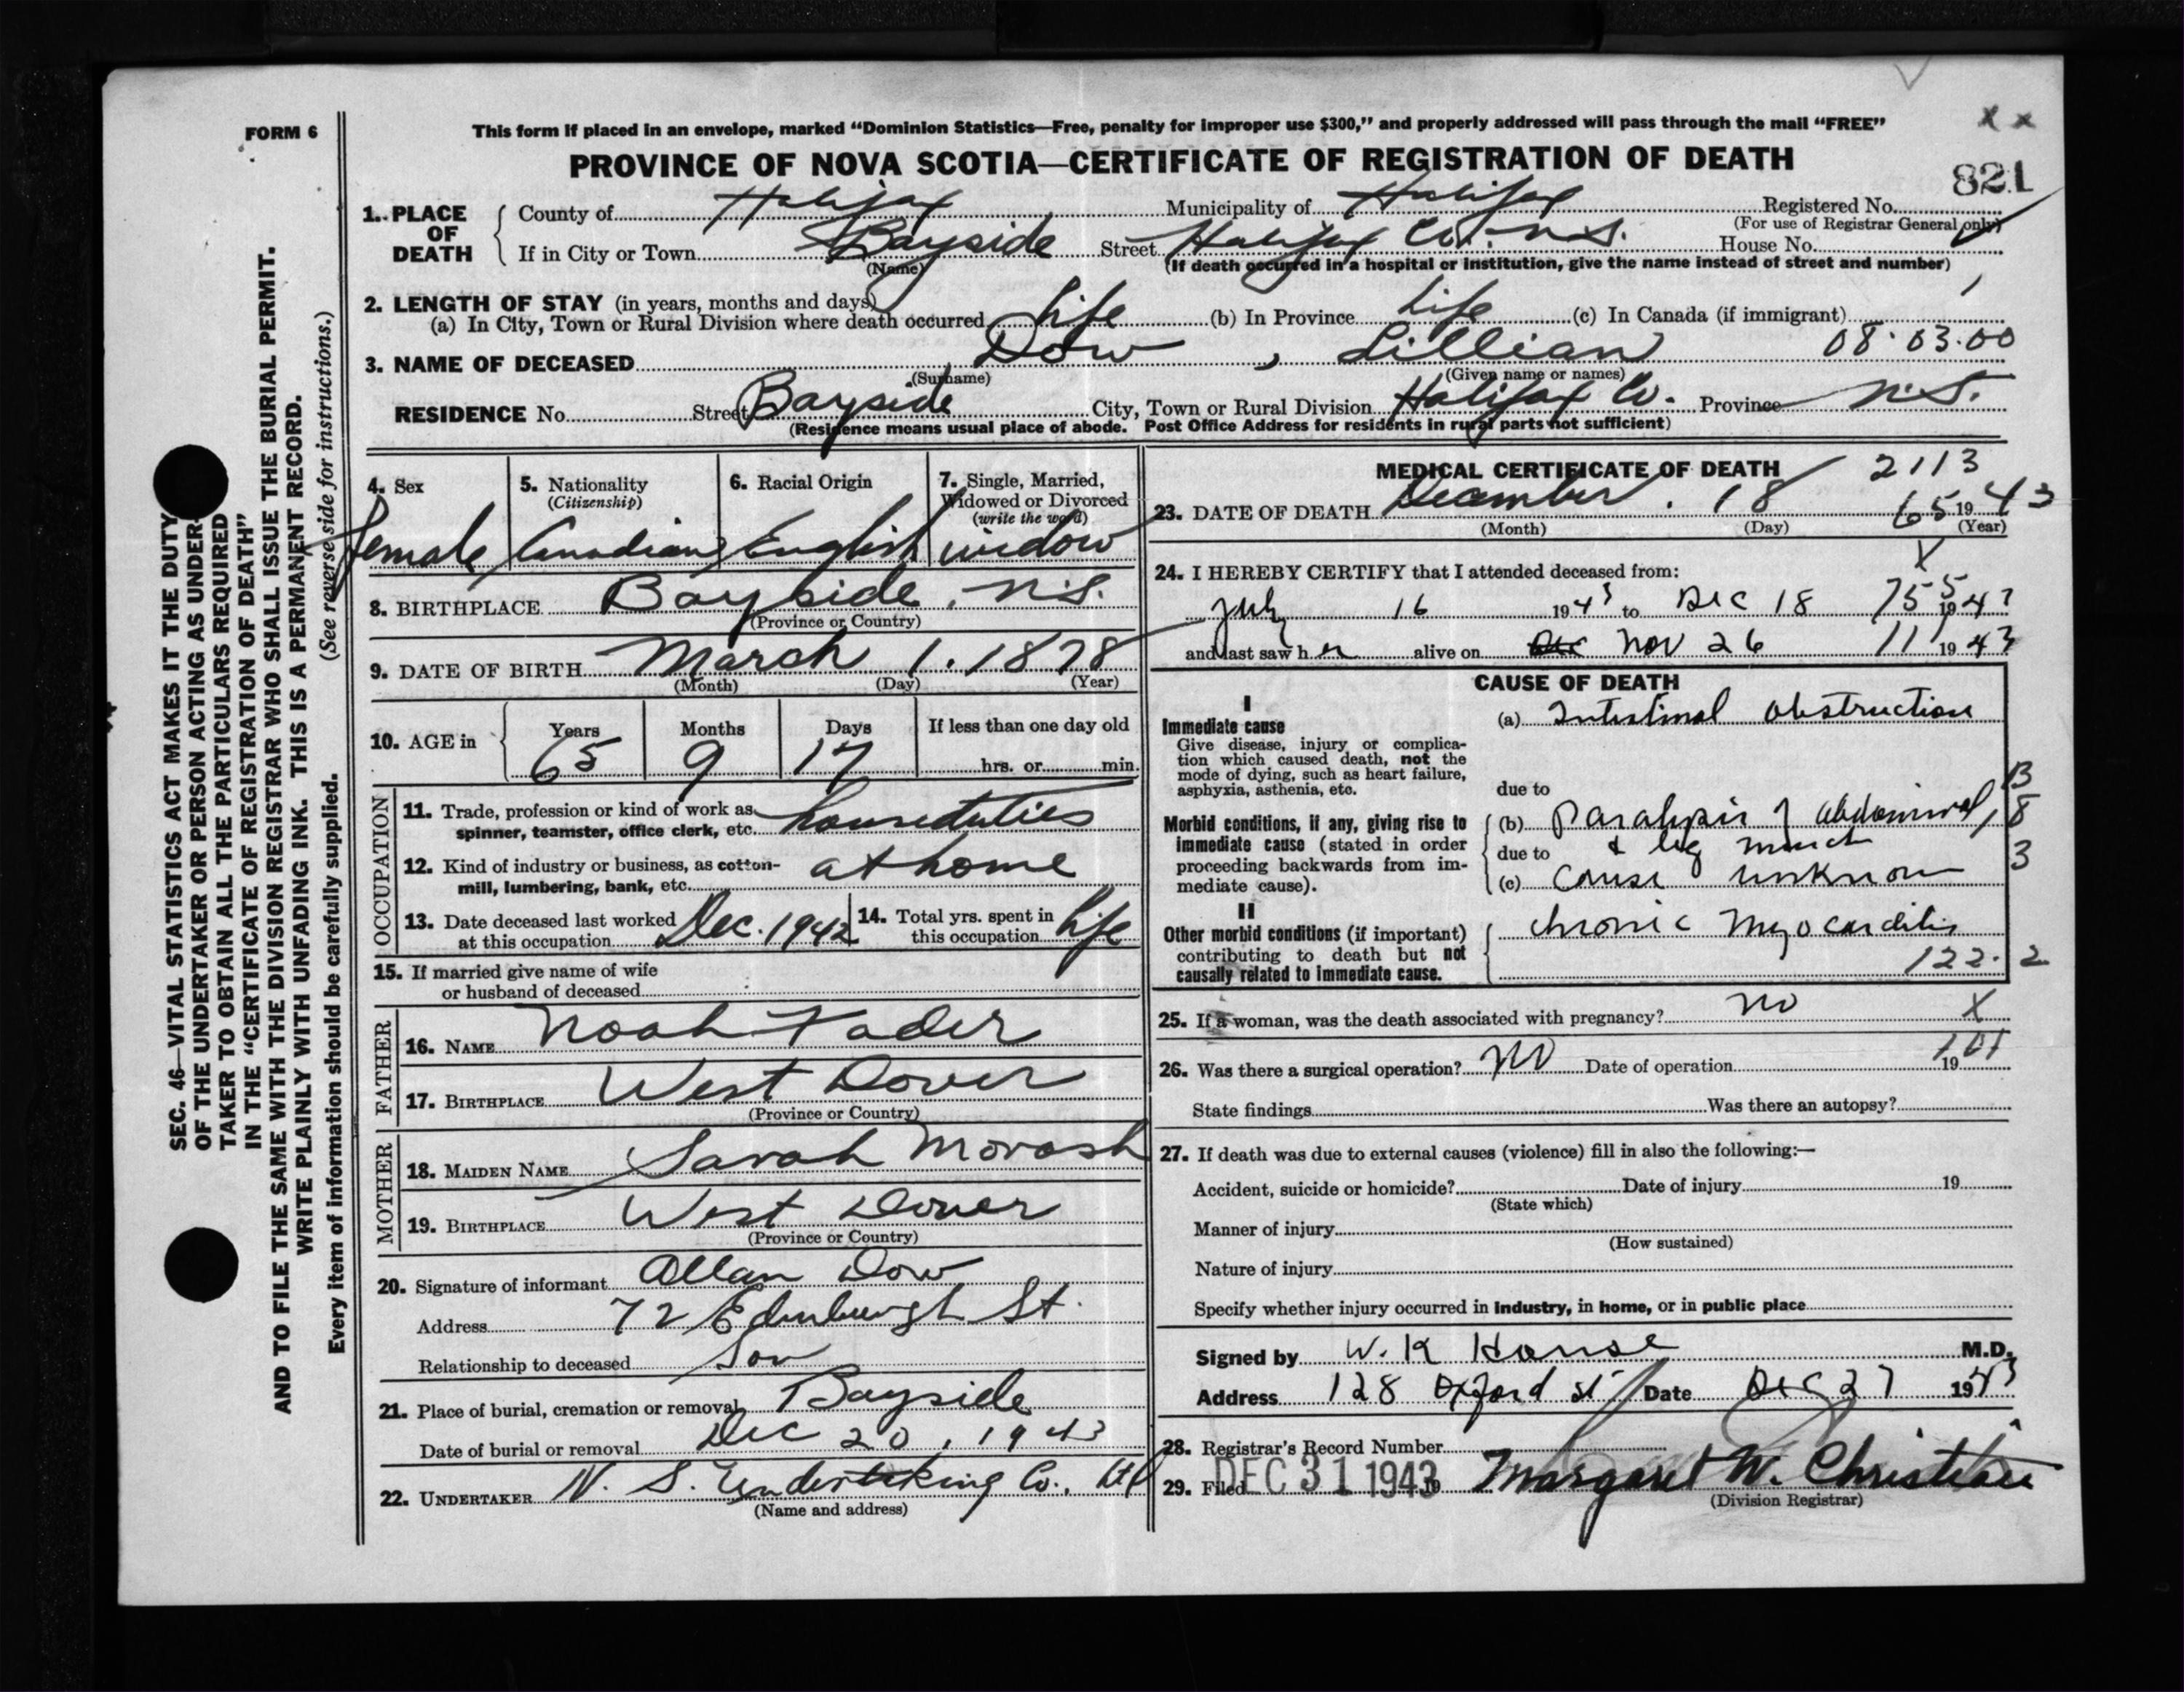 FORM 6
This form if placed in an envelope, marked “Dominion Statistics—Free, penalty for improper use $300,” and properly addressed will pass through the mail “FREE”
x x
PROVINCE OF NOVA SCOTIA—CERTIFICATE OF REGISTRATION OF DEATH
821
1. PLACE OF DEATH
County of Halifax Municipality of Halifax Registered No.
(For use of Registrar General only)
If in City or Town Bayside Street Halifax Co. N.S. House No.
(Name) (If death occurred in a hospital or institution, give the name instead of street and number)
2. LENGTH OF STAY (in years, months and days)
(a) In City, Town or Rural Division where death occurred Life (b) In Province Life (c) In Canada (if immigrant)
3. NAME OF DECEASED Dow , Lillian 08.03.00
(Surname) (Given name or names)
RESIDENCE No. Street Bayside City, Town or Rural Division Halifax Co. Province N.S.
(Residence means usual place of abode. Post Office Address for residents in rural parts not sufficient)
4. Sex
female
5. Nationality
(Citizenship)
Canadian
6. Racial Origin
English
7. Single, Married,
Widowed or Divorced
(write the word)
widow
8. BIRTHPLACE Bayside, N.S.
(Province or Country)
9. DATE OF BIRTH March 1. 1878
(Month) (Day) (Year)
10. AGE in
Years Months Days If less than one day old
65 9 17 hrs. or min.
OCCUPATION
11. Trade, profession or kind of work as
spinner, teamster, office clerk, etc. houseduties
12. Kind of industry or business, as cotton-
mill, lumbering, bank, etc. at home
13. Date deceased last worked
at this occupation Dec. 1942
14. Total yrs. spent in
this occupation life
15. If married give name of wife
or husband of deceased
FATHER
16. NAME Noah Fader
17. BIRTHPLACE West Dover
(Province or Country)
MOTHER
18. MAIDEN NAME Sarah Morash
19. BIRTHPLACE West Dover
(Province or Country)
20. Signature of informant Allan Dow
Address 72 Edinburgh St.
Relationship to deceased Son
21. Place of burial, cremation or removal Bayside
Date of burial or removal Dec 20, 1943
22. UNDERTAKER N. S. Undertaking Co., Ltd
(Name and address)
MEDICAL CERTIFICATE OF DEATH
2113
23. DATE OF DEATH December . 18 65 1943
(Month) (Day) (Year)
X
24. I HEREBY CERTIFY that I attended deceased from:
July 16 1943 to Dec 18 1943
and last saw her alive on Nov 26 11 1943
CAUSE OF DEATH
I
Immediate cause
Give disease, injury or complica-
tion which caused death, not the
mode of dying, such as heart failure,
asphyxia, asthenia, etc.
(a) Intestinal Obstruction
due to
Morbid conditions, if any, giving rise to
immediate cause (stated in order
proceeding backwards from im-
mediate cause).
(b) Paralysis of abdominal
due to & leg muscle
(c) cause unknown
B
8
3
II
Other morbid conditions (if important)
contributing to death but not
causally related to immediate cause.
chronic Myocarditis
122. 2
25. If a woman, was the death associated with pregnancy? no X
26. Was there a surgical operation? no Date of operation 19
State findings Was there an autopsy?
27. If death was due to external causes (violence) fill in also the following:—
Accident, suicide or homicide? Date of injury 19
(State which)
Manner of injury
(How sustained)
Nature of injury
Specify whether injury occurred in industry, in home, or in public place
Signed by W. K House M.D.
Address 128 Oxford St Date Dec 27 1943
28. Registrar's Record Number
29. Filed DEC 31 1943 19 Margaret W. Christie
(Division Registrar)
SEC. 46—VITAL STATISTICS ACT MAKES IT THE DUTY
OF THE UNDERTAKER OR PERSON ACTING AS UNDER-
TAKER TO OBTAIN ALL THE PARTICULARS REQUIRED
IN THE “CERTIFICATE OF REGISTRATION OF DEATH”
AND TO FILE THE SAME WITH THE DIVISION REGISTRAR WHO SHALL ISSUE THE BURIAL PERMIT.
WRITE PLAINLY WITH UNFADING INK. THIS IS A PERMANENT RECORD.
(See reverse side for instructions.)
Every item of information should be carefully supplied.